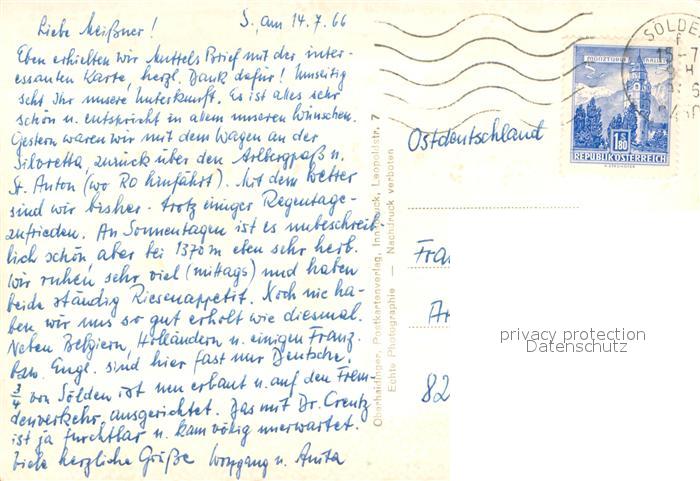 S., am 14.7.66
Liebe Meißner!
Eben erhielten wir Muttels Brief mit der inter-
essanten Karte, herzl. Dank dafür! Umseitig
seht Ihr unsere Unterkunft. Es ist alles sehr
schön u. entspricht in allem unseren Wünschen.
Gestern waren wir mit dem Wagen an der
Silvretta, zurück über den Arlbergpaß u.
St. Anton (wo Ro hinfährt). Mit dem Wetter
sind wir bisher - trotz einiger Regentage -
zufrieden. An Sonnentagen ist es unbeschreib-
lich schön, aber bei 1370 m eben sehr herb.
Wir ruhen sehr viel (mittags) und haben
beide ständig Riesenappetit. Noch nie ha-
ben wir uns so gut erholt wie diesmal.
Neben Belgiern, Holländern u. einigen Franz.
bzw. Engl. sind hier fast nur Deutsche.
3/4 von Sölden ist neu erbaut u. auf den Frem-
denverkehr ausgerichtet. Das mit Dr. Creutz
ist ja furchtbar u. kam völlig unerwartet.
Viele herzliche Grüße Wolfgang u. Anita
Oberhaidinger, Postkartenverlag, Innsbruck, Leopoldstr. 7
Echte Photographie — Nachdruck verboten
SÖLDEN
15.-7
MÜNZTURM HALL i.T.
1.80
S
REPUBLIK ÖSTERREICH
Ostdeutschland
Fra
Ar
82
privacy protection
Datenschutz